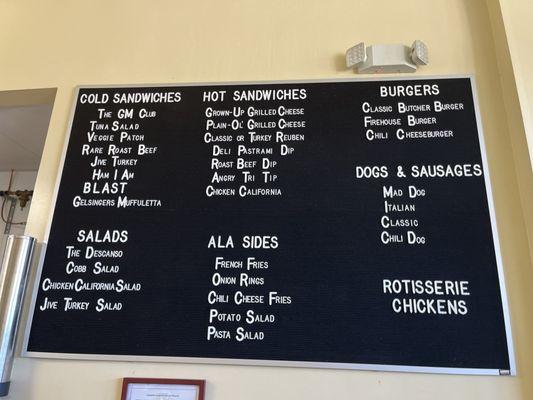 COLD SANDWICHES
THE GM CLUB
TUNA SALAD
VEGGIE PATCH
RARE ROAST BEEF
JIVE TURKEY
HAM I AM
BLAST
GELSINGERS MUFFULETTA
SALADS
THE DESCANSO
COBB SALAD
CHICKEN CALIFORNIA SALAD
JIVE TURKEY SALAD
HOT SANDWICHES
GROWN-UP GRILLED CHEESE
PLAIN-OL' GRILLED CHEESE
CLASSIC OR TURKEY REUBEN
DELI PASTRAMI DIP
ROAST BEEF DIP
ANGRY TRI TIP
CHICKEN CALIFORNIA
ALA SIDES
FRENCH FRIES
ONION RINGS
CHILI CHEESE FRIES
POTATO SALAD
PASTA SALAD
BURGERS
CLASSIC BUTCHER BURGER
FIREHOUSE BURGER
CHILI CHEESEBURGER
DOGS & SAUSAGES
MAD DOG
ITALIAN
CLASSIC
CHILI DOG
ROTISSERIE
CHICKENS